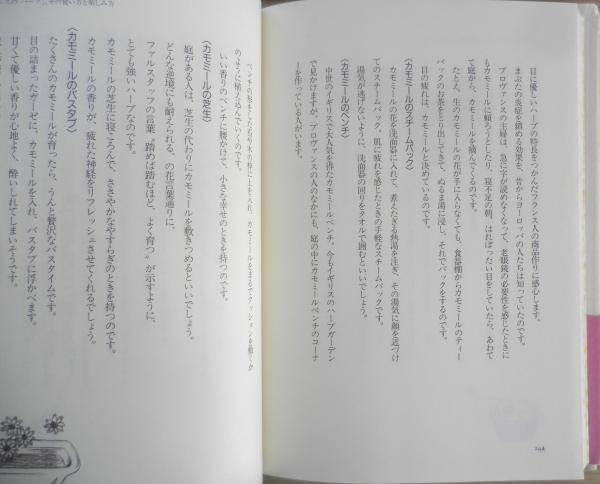 目に優しいハーブの特長をつかんだフランス人の商品作りに感心します。
まぶたの炎症を鎮める効果を、昔からヨーロッパの人たちは知っていたのです。
プロヴァンスの主婦は、急に字が読めなくなって、老眼鏡の必要性を感じたときに
もカモミールに頼ろうとしたり、寝不足の朝、はれぼったい目をしていたら、あわて
て庭から、カモミールを摘んでくるのです。
たとえ、生のカモミールの花が手に入らなくても、食器棚からカモミールのティー
バックのお茶をとり出してきて、ぬるま湯に浸し、それでパックをするのです。
目の疲れは、カモミールと決めているのです。
〈カモミールのスチームパック〉
カモミールの花を洗面器に入れて、煮えたぎる熱湯を注ぎ、その湯気に顔を近づけ
てのスチームパック。肌に疲れを感じたときの手軽なスチームパックです。
湯気が逃げないように、洗面器の回りをタオルで囲むといいでしょう。
〈カモミールのベンチ〉
中世のイギリスで大人気を得たカモミールベンチ。今もイギリスのハーブガーデン
で見かけますが、プロヴァンスの人のなかにも、庭の中にカモミールベンチのコーナ
ーを作っている人がいます。
194
ベンチの形をした石や木の枠に土を入れ、カモミールをまるでクッションを敷くか
のように植え込んでいくのです。
いい香りのベンチに腰かけて、小さな幸せのときを持つのです。
〈カモミールの芝生〉
庭がある人は、芝生の代わりにカモミールを敷きつめるといいでしょう。
どんな逆境にも耐えられる、の花言葉通りに、
ファルスタッフの言葉〝踏めば踏むほど、よく育つ〟が示すように、
とても強いハーブなのです。
カモミールの芝生に寝ころんで、ささやかなやすらぎのときを持つのです。
カモミールの香りが、疲れた神経をリフレッシュさせてくれるでしょう。
〈カモミールのバスタブ〉
たくさんのカモミールが育ったら、うんと贅沢なバスタイムです。
目の詰まったガーゼに、カモミールを入れ、バスタブに浮かべます。
甘くて優しい香りが心地よく、酔いしれてしまいそうです。
その使い方と楽しみ方